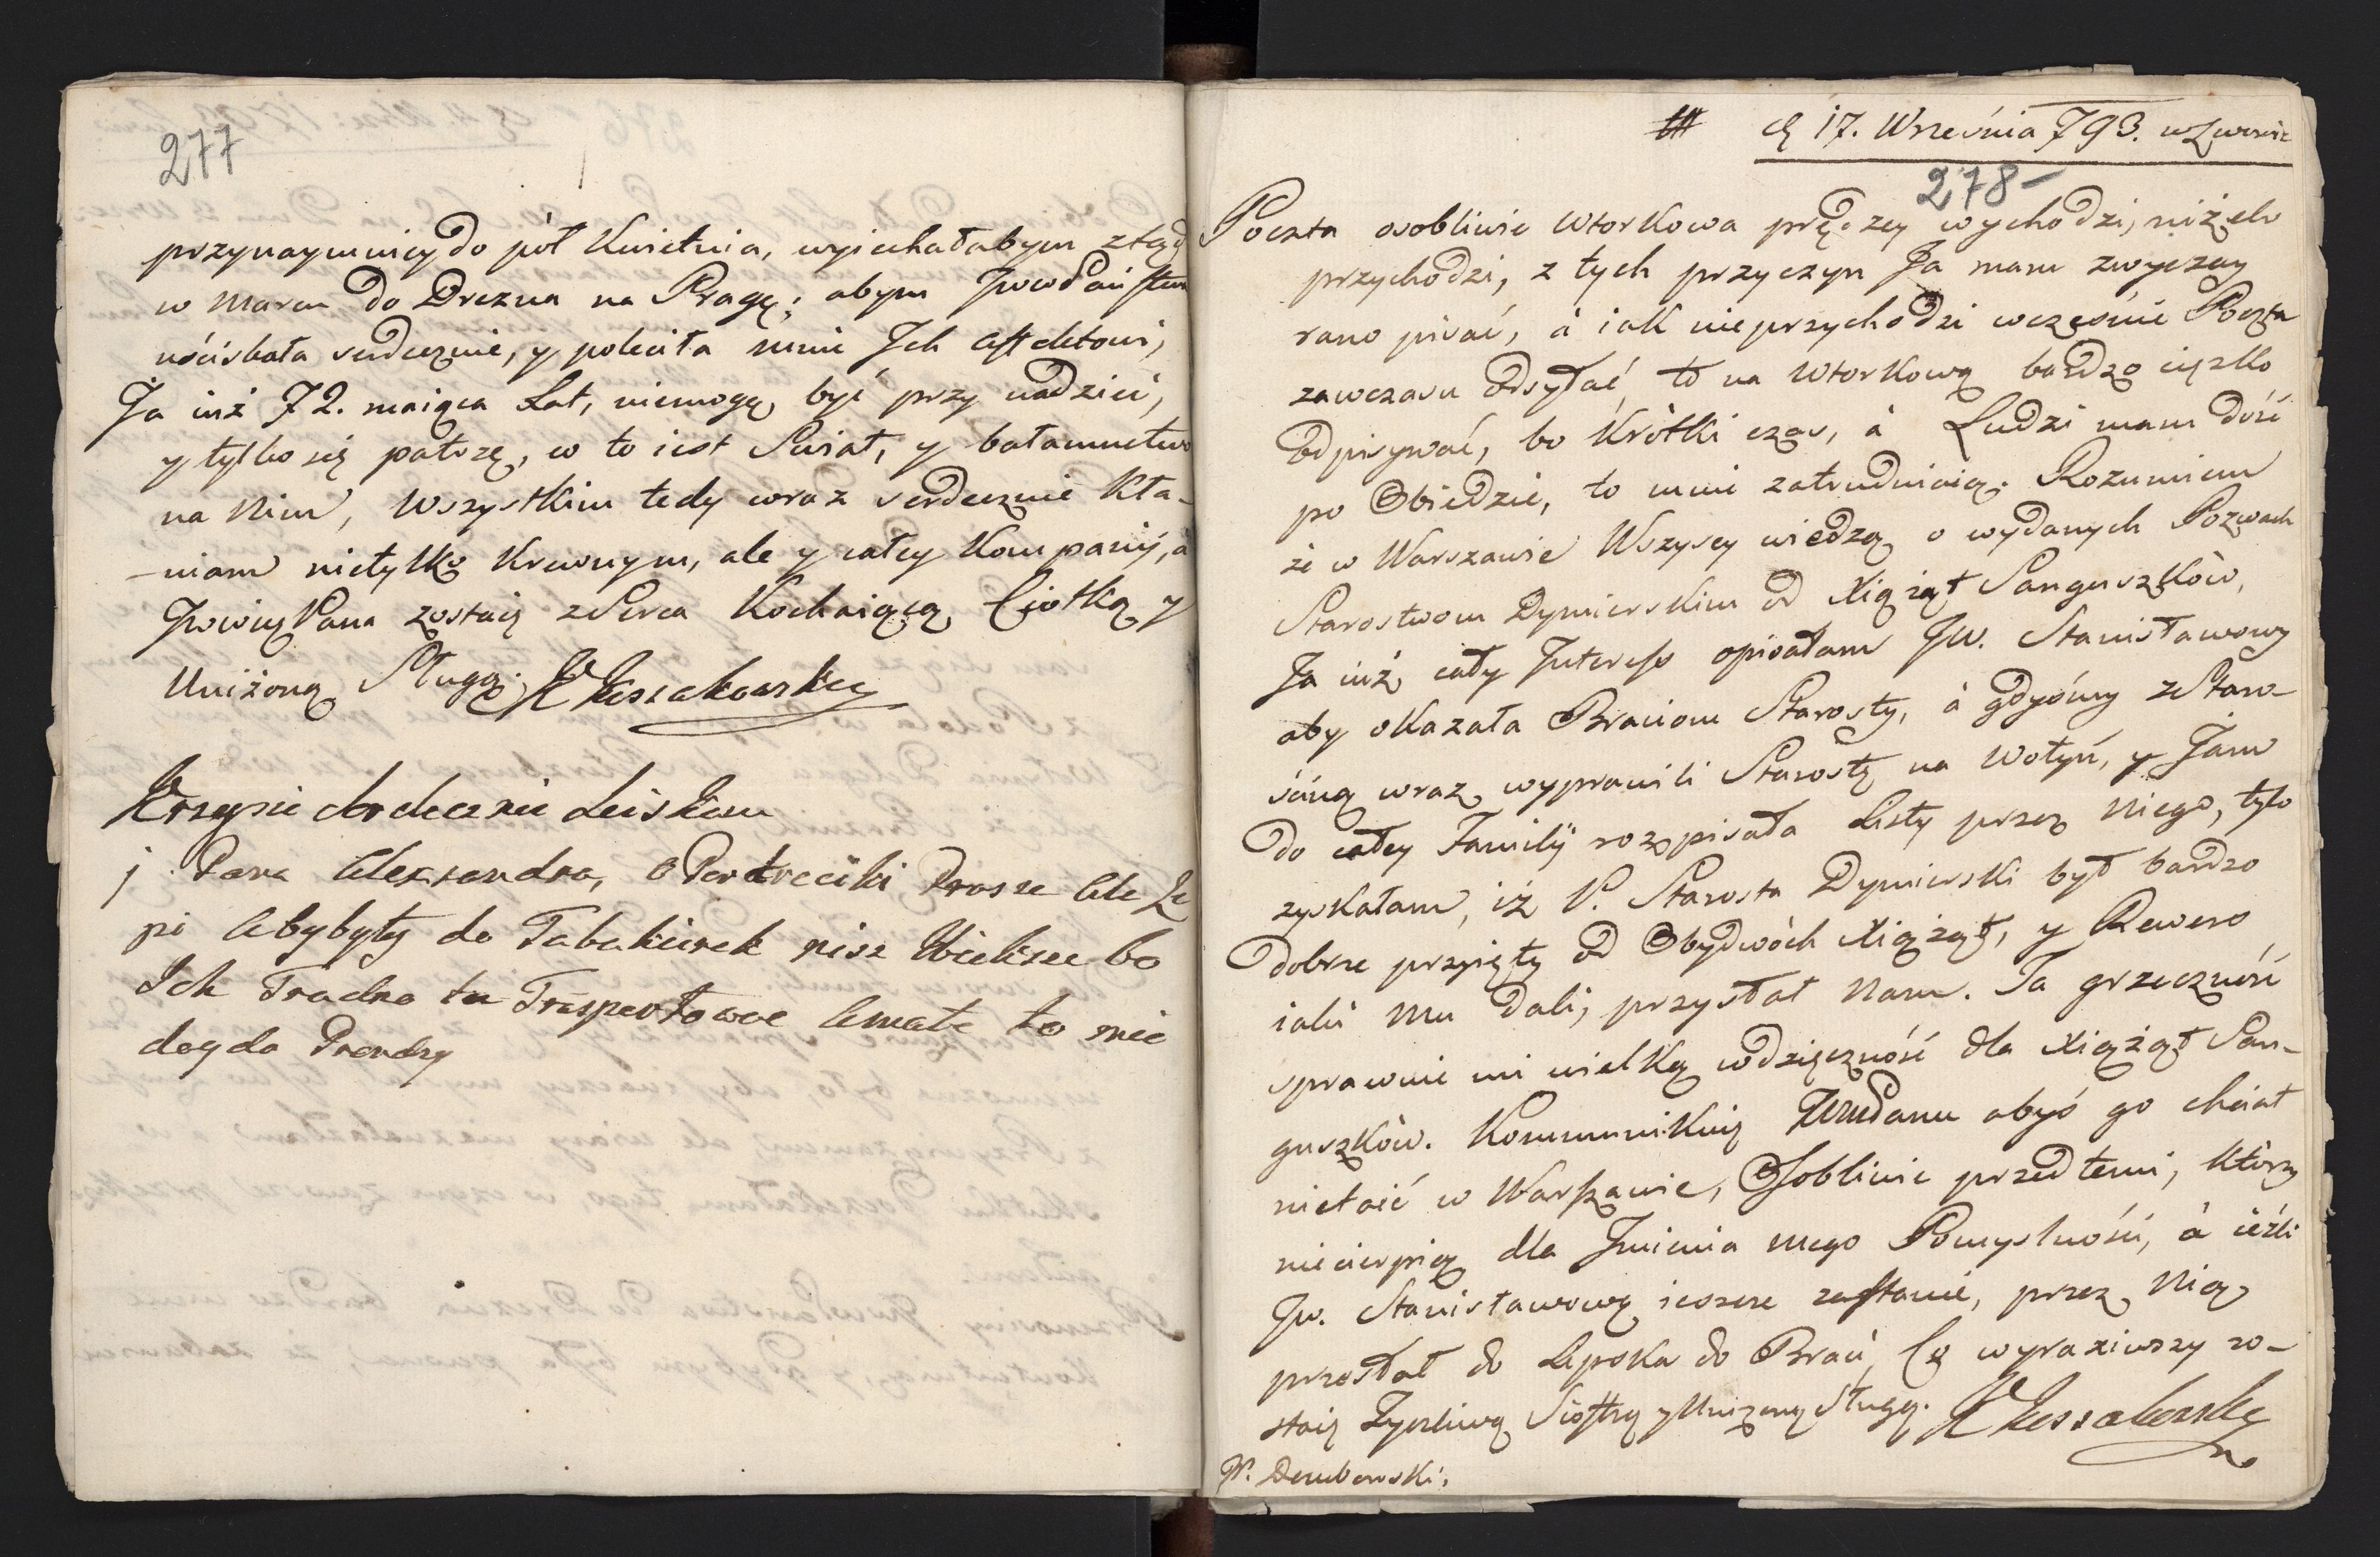 277
przynaymniey do pół Kwietnia, wyiechałabym ztąd
w Marcu do Drezna na Pragę; abym JwwPaństwa
uściskała serdecznie, y poleciła mnie Jch affektowi,
Ja iuż 72. maiąca Lat, niemogę być przy nadziei,
y tylko się patrzę, w to iest Swiat, y bałamuctwo
na Nim, Wszystkim tedy wraz serdecznie Kła-
-niam nietylko Krewnym, ale y całey Kompanij, a
JwwPana zostaię zSerca Kochaiącą Ciotką y
Uniżoną Sługą. KKossakowska
Krzysie serdecznie sciskam
j Pana Alexandra, o Portreciki Prosze Ale Le
pi Abybyły do Tabakierek nisz Wieksze bo
Ich Tradno tu Trasportowac Amałe to nie
dogda Prendzy
d 17. Września 793. wLwowie
278-
Poczta osobliwie Wtorkowa prędzey wychodzi, niżeli
przychodzi, z tych przyczyn Ja mam zwyczay
rano pisać, à iak nieprzychodzi wcześnie Poczta
zawczasu Odsyłać, to na Wtorkową bardzo ciężko
Odpisywać, bo Krótki czas, à Ludzi mam dość
po Obiedzie, to mnie zatrudniaią. Rozumiem
że w Warszawie Wszyscy wiedzą o wydanych Pozwach
Starostwom Dymierskim od Xiążąt Sanguszków,
Ja iuż cały Interess opisałam Jw. Stanisławowy
aby okazała Braciom Starosty, à gdyśmy zStaro-
ściną wraz wyprawili Starostę na Wołyń, y Jam
do całey Familij rozpisała Listy przez Niego, tylo
zyskałam, iż P. Starosta Dymierski był bardzo
dobrze przyięty od Obydwóch Xiążąt, y Rewers
iaki Mu Dali, przysłał Nam. Ta grzeczność
sprawuie mi wielką wdzięczność dla Xiążąt San-
guszków. Kommunikuię WMPanu abyś go chciał
nietaić w Warszawie, Osobliwie przed temi, którzy
niecierpią dla Jmienia mego Pomyslności, à ieźli
Jw. Stanisławową ieszcze zastanie, przez Nią
przesłał do Lipska do Braci, Co wyraziwszy zo-
staię Życzliwą Siostrą y Uniżoną Sługą. KKossakowska
P. Dembowski.